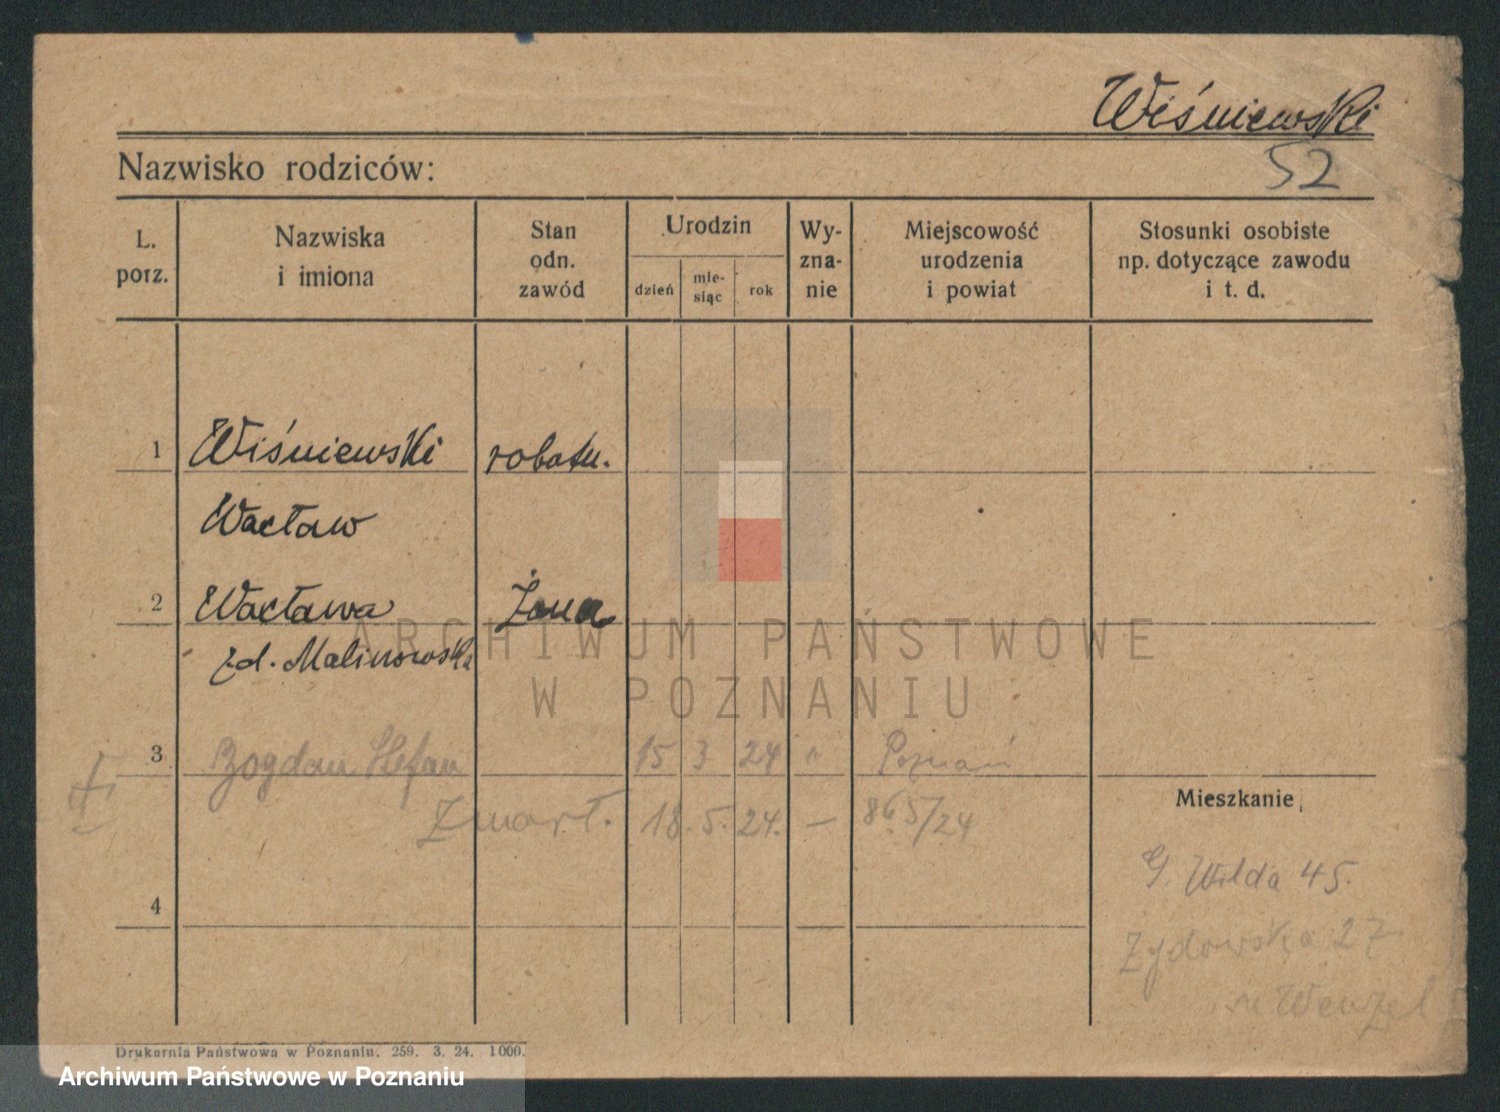 Wiśniewski
52
Nazwisko rodziców:
L. porz.
Nazwiska i imiona
Stan odn. zawód
Urodzin
dzień
mie-
siąc
rok
Wy-
zna-
nie
Miejscowość urodzenia i powiat
Stosunki osobiste np. dotyczące zawodu i t. d.
1 Wiśniewski robotn.
Wacław
2 Wacława Żona
zd. Malinowska
ARCHIWUM PAŃSTWOWE
W POZNANIU
3 Bogdan Stefan 15 3 24 " Poznań
Zmarł. 18. 5. 24. — 865/24
Mieszkanie
G. Wilda 45.
4
Żydowska 27
u Wenzel
Drukarnia Państwowa w Poznaniu. 259. 3. 24. 1000.
Archiwum Państwowe w Poznaniu